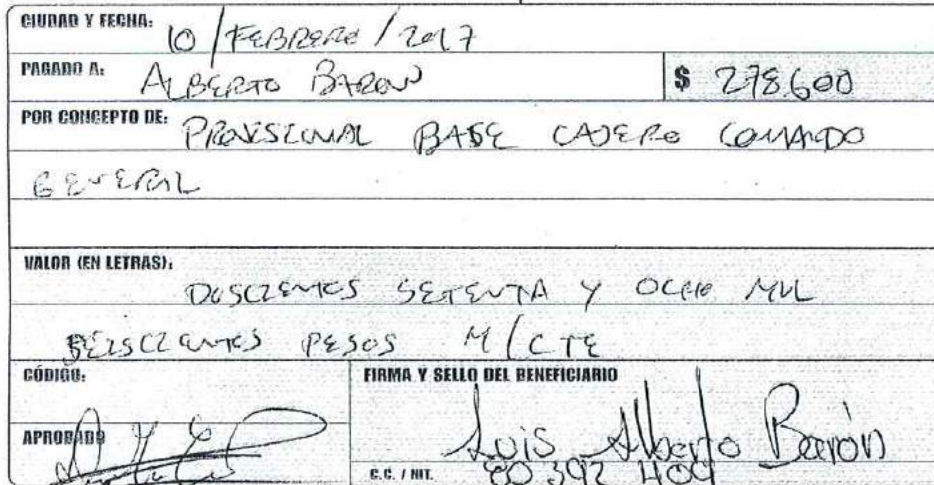 CIUDAD Y FECHA: 10/FEBRERO/2017
PAGADO A: ALBERTO BARON $ 278.600
POR CONCEPTO DE: BASE CAJERO COMANDO
GENERAL
VALOR (EN LETRAS):
DOSCIENTOS SETENTA Y OCHO MIL
SEISCIENTOS PESOS M/CTE
CÓDIGO: FIRMA Y SELLO DEL BENEFICIARIO
APROBADO Luis Alberto Barón
C.C. / NIT. 80 392 409